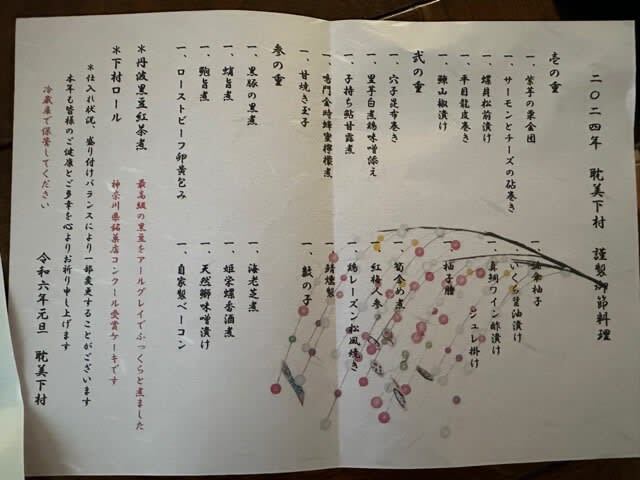 二〇二四年 耽美下村 謹製御節料理
壱の重
一、紫芋の栗金団
一、サーモンとチーズの砧巻き
一、螺貝松前漬け
一、平目龍皮巻き
一、鰊山椒漬け
柚子
一、いくら醤油漬け
一、真鯛ワイン酢漬け
ジュレ掛け
一、柚子膾
弐の重
一、穴子昆布巻き
一、里芋白煮鶏味噌添え
一、子持ち鮎甘露煮
一、鳴門金時蜂蜜檸檬煮
一、甘焼き玉子
一、筍含め煮
一、紅梅人参
一、鶏レーズン松風焼き
一、鯖燻製
一、数の子
参の重
一、黒豚の黒煮
一、蛸旨煮
一、鮑旨煮
一、ローストビーフ卵黄包み
一、海老芝煮
一、姫栄螺香酒煮
一、天然鰤味噌漬け
一、自家製ベーコン
＊丹波黒豆紅茶煮 最高級の黒豆をアールグレイでふっくらと煮ました
＊下村ロール 神奈川県銘菓店コンクール受賞ケーキです
＊仕入れ状況、盛り付けバランスにより一部変更することがございます
本年も皆様のご健康とご多幸を心よりお祈り申し上げます
冷蔵庫で保管してください
令和六年元旦 耽美下村